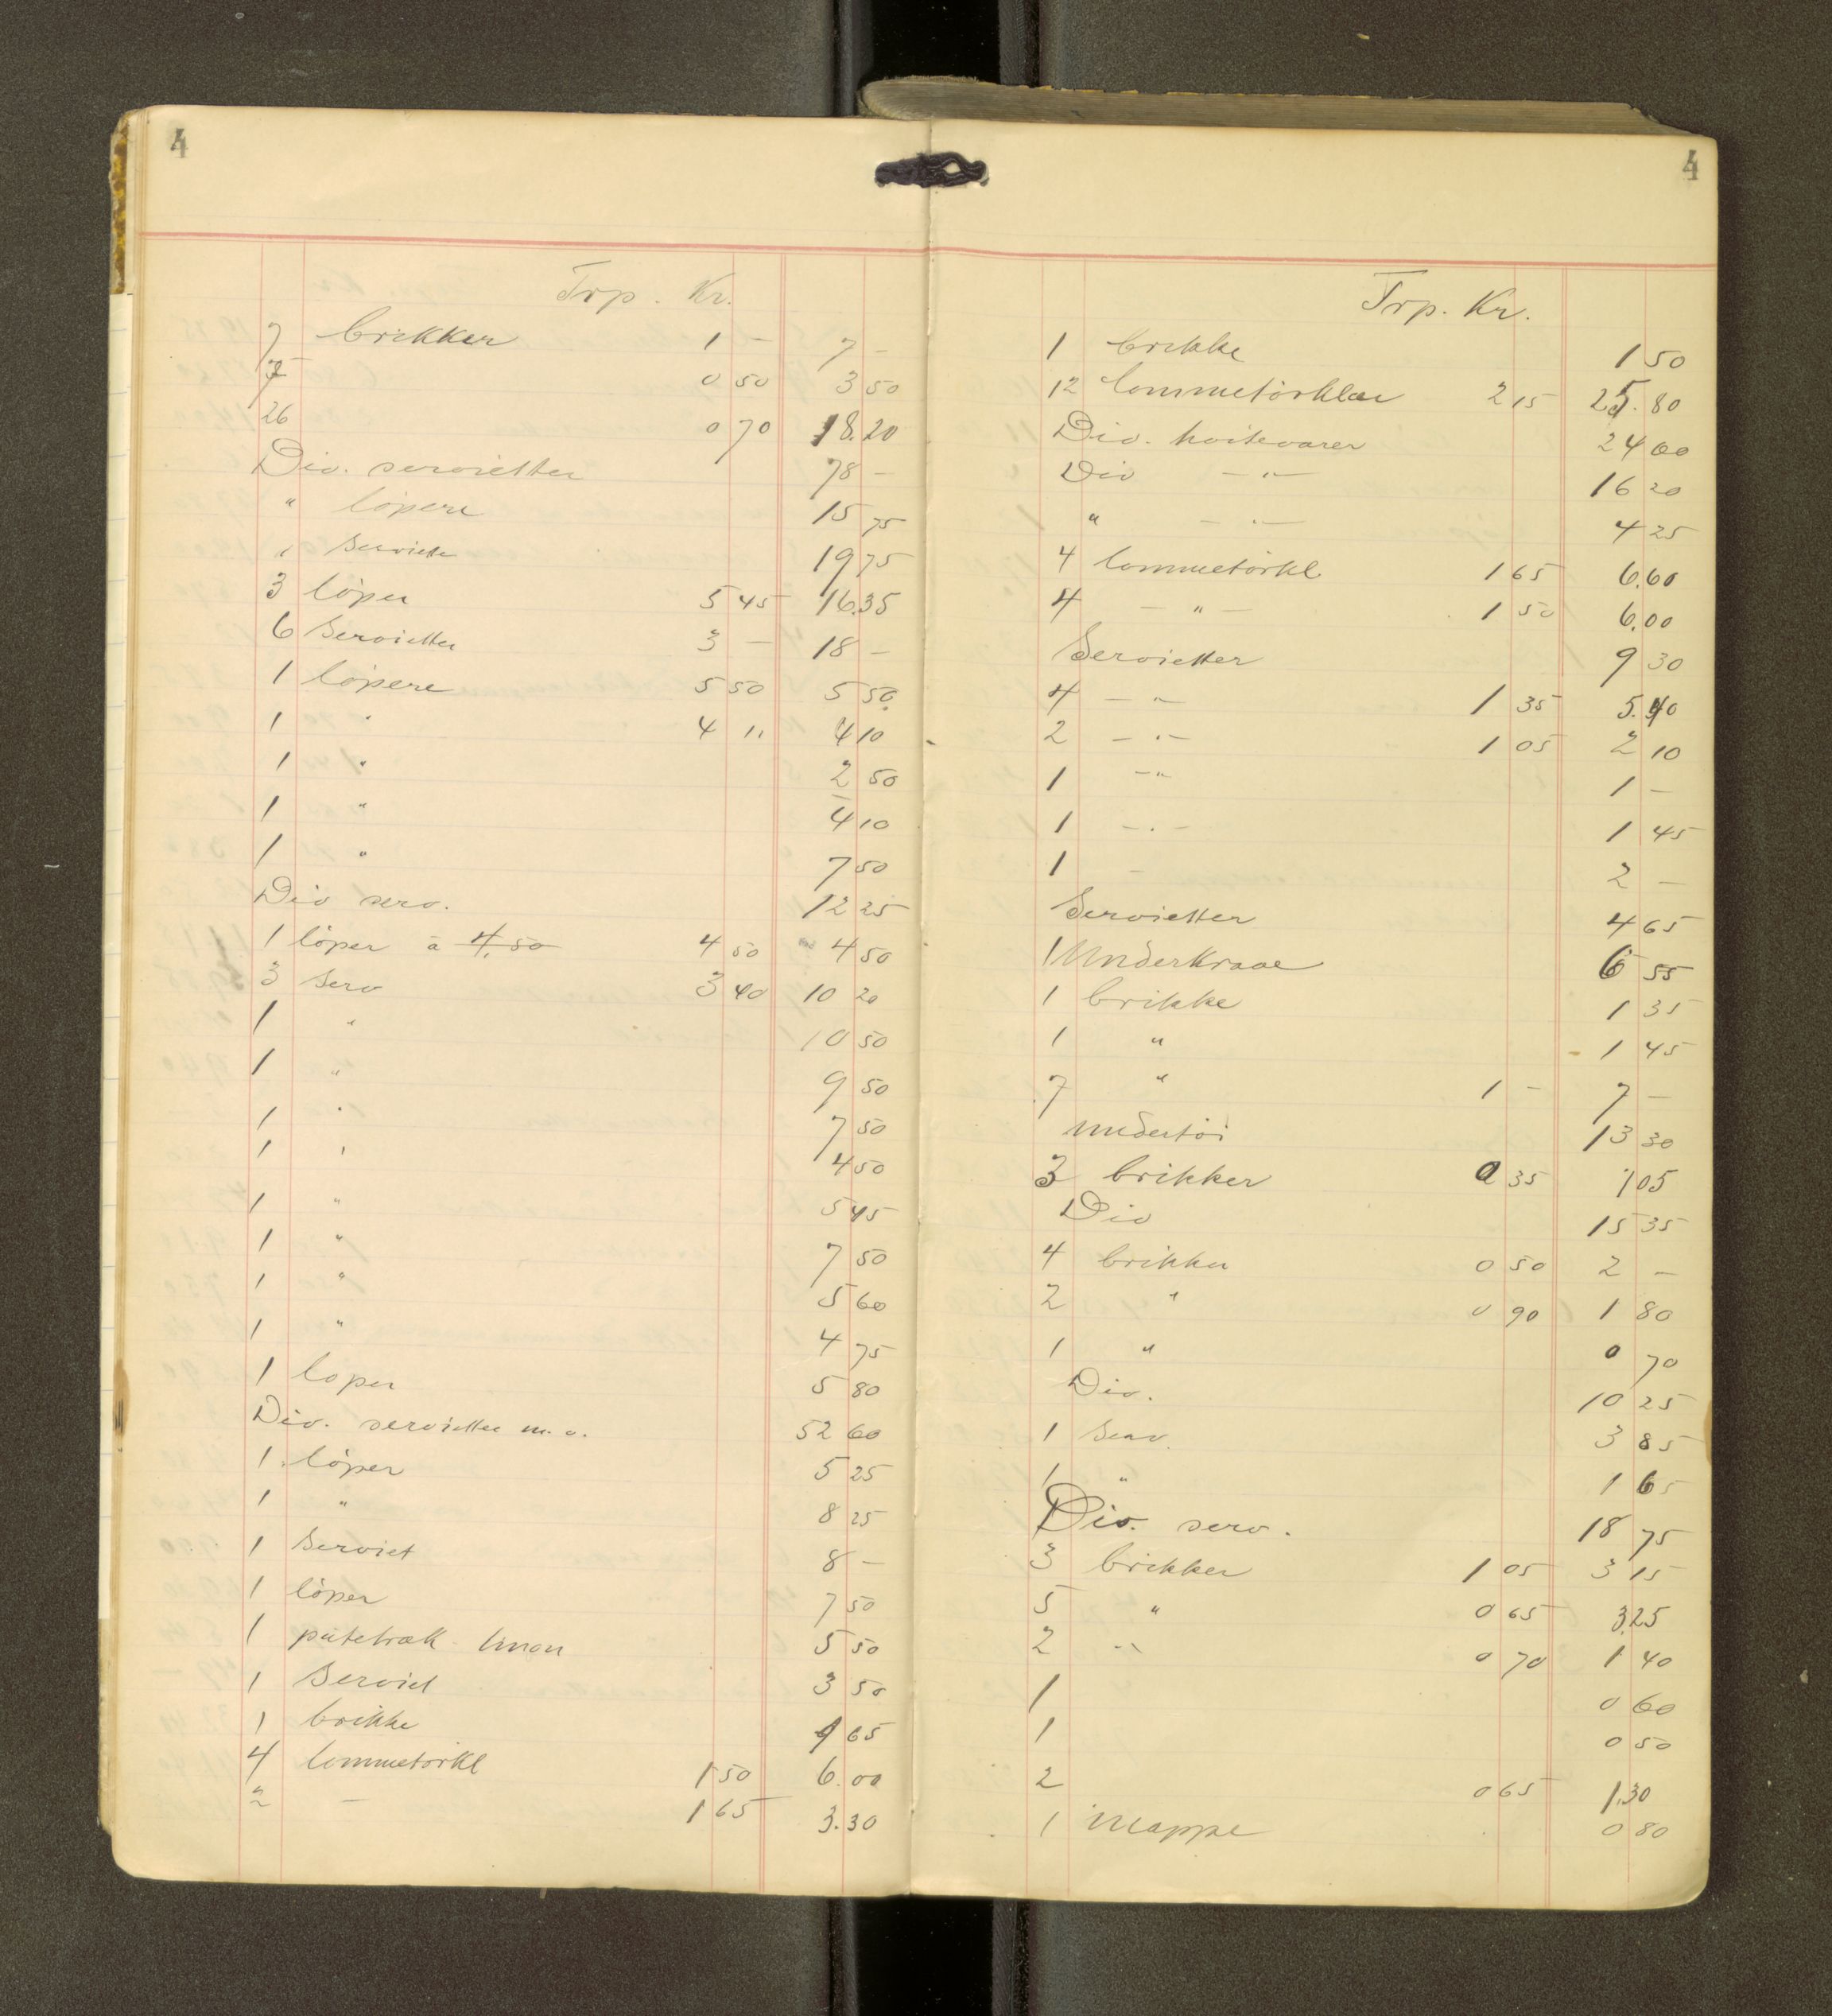 4
Trp. Kr.
7 brikker 1 – 7 –
7 0 50 3 50
26 0 70 18.20
Div. servietter 78 –
" löpere 15 75
" Serviette 19 75
3 löper 5 45 16.35
6 Servietter 3 – 18 –
1 löpere 5 50 5 50
1 " 4 " 4 10
1 " 2 50
1 " 4 10
1 " 7 50
Div serv. 12 25
1 löper à 4,50 4 50 4 50
3 Serv 3 40 10 20
1 " 10 50
1 " 9 50
1 " 7 50
1 " 4 50
1 " 5 45
1 " 7 50
1 " 5 60
1 " 4 75
1 loper 5 80
Div. servietter m. v. 52 60
1 löper 5 25
1 " 8 25
1 Serviet 8 –
1 löper 7 50
1 putetræk linon 5 50
1 Serviet 3 50
1 brikke 1 65
4 lommetörkl 1 50 6.00
2 – 1 65 3.30
4
Trp. Kr.
1 brikke 1 50
12 lommetörklær 2 15 25.80
Div. hvitevarer 24 00
Div – " – 16 20
" – " – 4 25
4 lommetörkl 1 65 6.60
4 – " – 1 50 6.00
Servietter 9 30
4 – " – 1 35 5.40
2 – " – 1 05 2 10
1 – " 1 –
1 – " – 1 45
1 – 2 –
Servietter 4 65
1 Underkraae 6 55
1 brikke 1 35
1 " 1 45
7 " 1 – 7 –
Undertöi 13 30
3 brikker 0 35 1 05
Div 15 35
4 brikker 0 50 2 –
2 " 0 90 1 80
1 " 0 70
Div. 10 25
1 Serv. 3 85
1 " 1 65
Div. serv. 18 75
3 brikker 1 05 3 15
5 " 0 65 3.25
2 " 0 70 1 40
1 0 60
1 0 50
2 0 65 1.30
1 Mappe 0 80